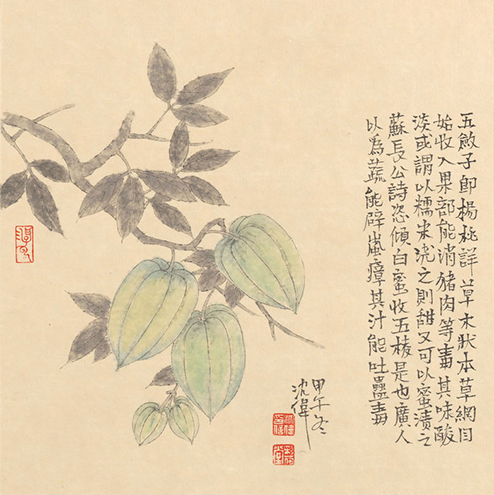 五斂子即楊桃詳草木狀本草綱目
始收入果部能消豬肉等毒其味酸
淡或謂以糯米澆之則甜又可以蜜漬之
蘇長公詩恣傾白蜜收五棱是也廣人
以為蔬能辟嵐瘴其汁能吐蠱毒
甲午冬
沈偉